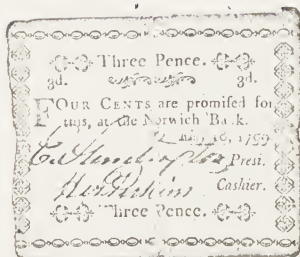 Three Pence.
3d. 3d.
FOUR CENTS are promiſed for
this, at the Norwich Bank.
1799
Presi.
Cashier.
Three Pence.